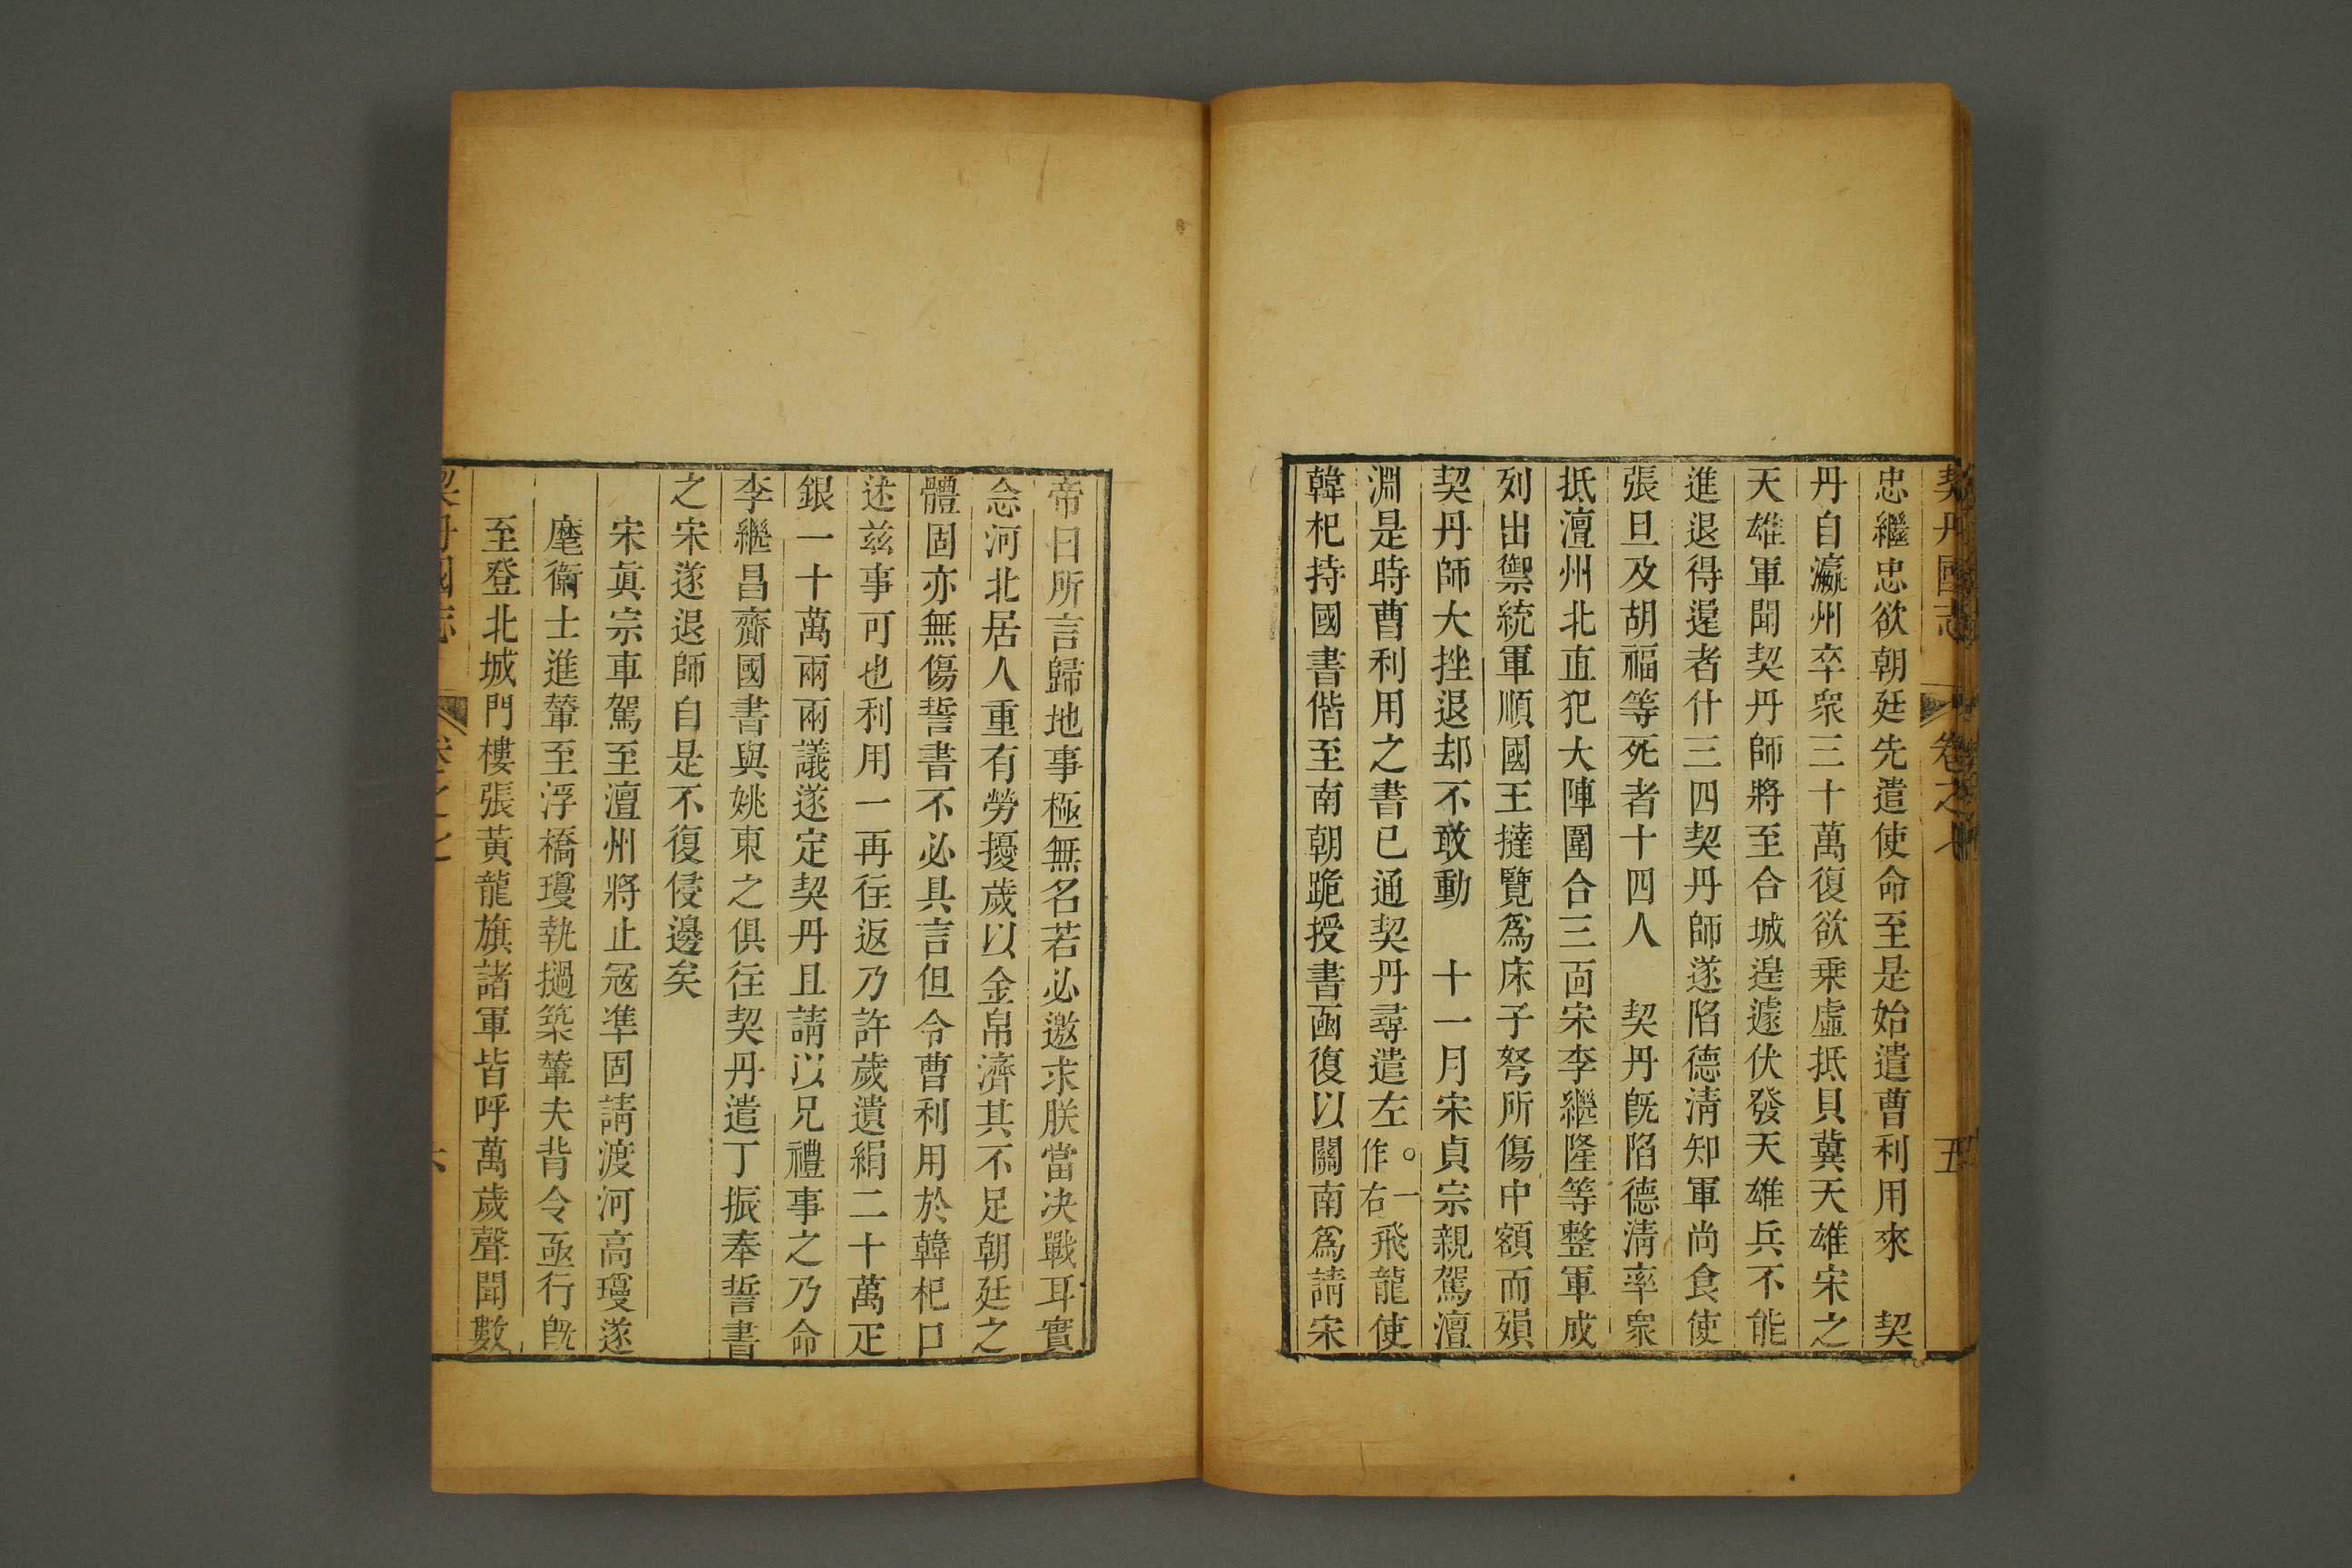 契丹國志 卷之七 五
忠繼忠欲朝廷先遣使命至是始遣曹利用來　契
丹自瀛州卒衆三十萬復欲乗虛抵貝冀天雄宋之
天雄軍聞契丹師將至合城遑遽伏發天雄兵不能
進退得還者什三四契丹師遂陷德淸知軍尚食使
張旦及胡福等死者十四人　契丹旣陷德淸率衆
抵澶州北直犯大陣圍合三面宋李繼隆等整軍成
列出禦統軍順國王撻覽爲床子弩所傷中額而殞
契丹師大挫退却不敢動　十一月宋貞宗親駕澶
淵是時曹利用之書已通契丹尋遣左。一作右飛龍使
韓杞持國書偕至南朝跪授書函復以關南爲請宋
帝曰所言歸地事極無名若必邀求朕當決戰耳實
念河北居人重有勞擾歲以金帛濟其不足朝廷之
體固亦無傷誓書不必具言但令曹利用於韓杞口
述兹事可也利用一再往返乃許歲遺絹二十萬疋
銀一十萬兩兩議遂定契丹且請以兄禮事之乃命
李繼昌齎國書與姚東之俱往契丹遣丁振奉誓書
之宋遂退師自是不復侵邊矣
宋眞宗車駕至澶州將止冦準固請渡河高瓊遂
麾衛士進輦至浮橋瓊執撾築輦夫背令亟行旣
至登北城門樓張黃龍旗諸軍皆呼萬歲聲聞數
契丹國志 卷之七